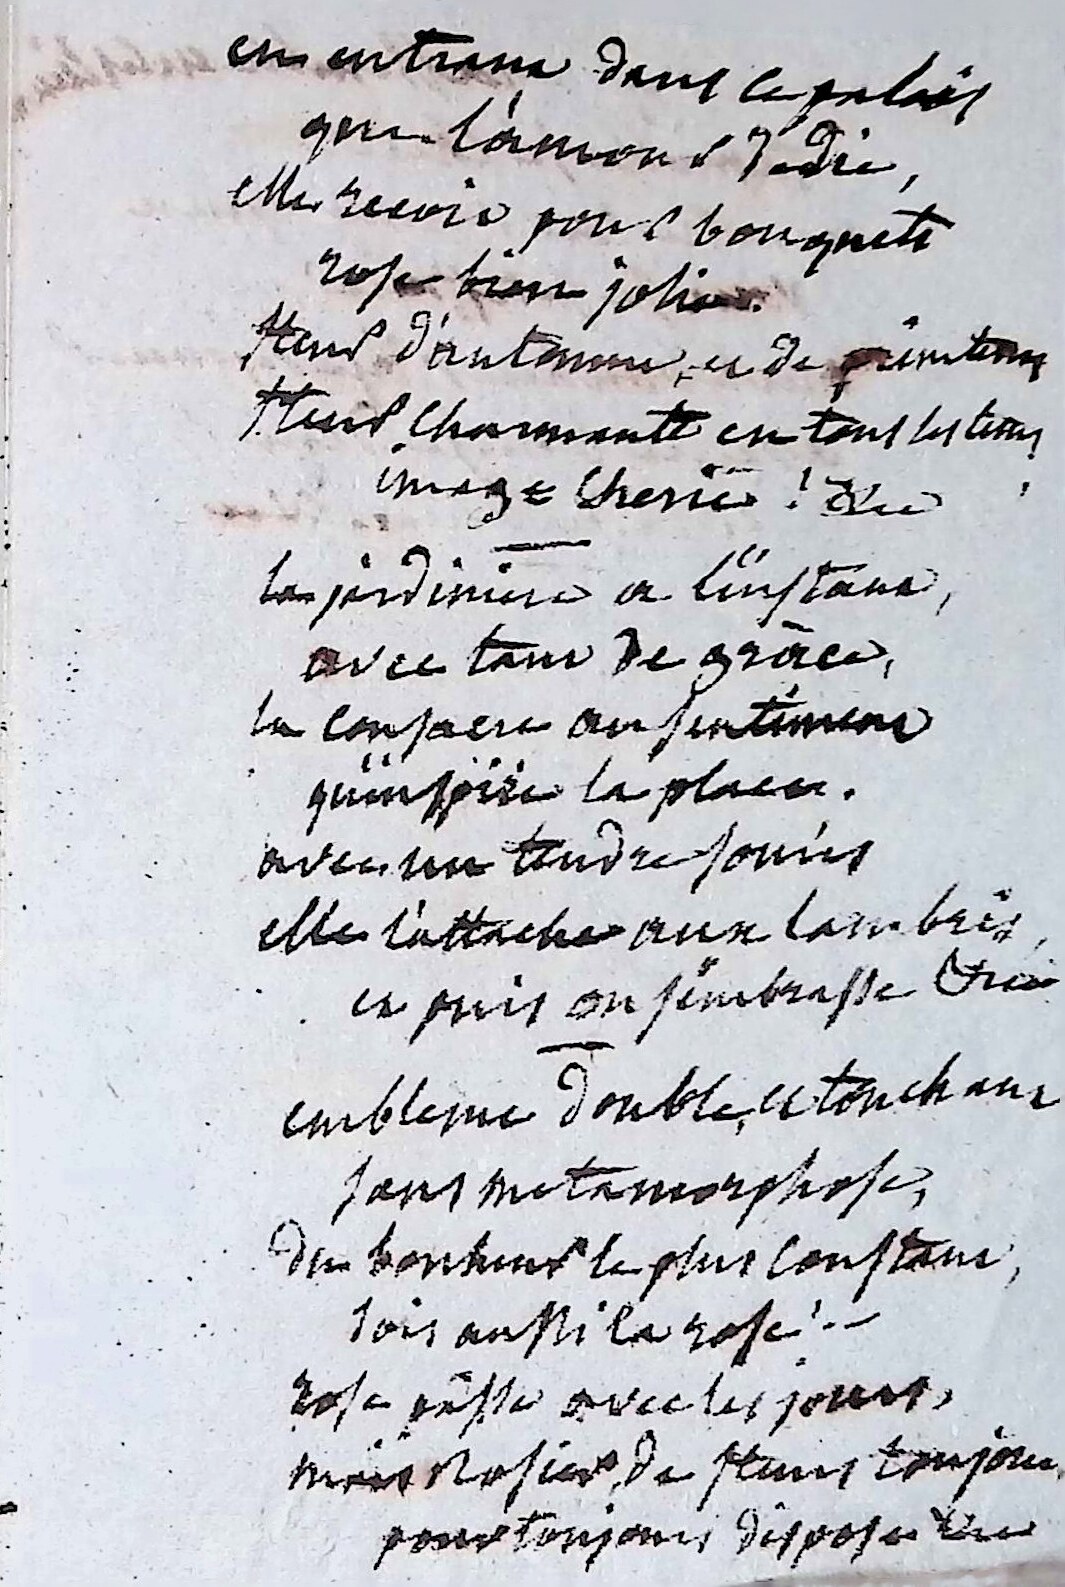 en entrant dans ce palais
que l'amour dédie,
elle reçoit pour bouquets
rose bien jolie.
fleur d'automne, et de printems
fleur charmante en tous les tems,
image cherie ! &ce
la jardiniere a l'instant,
avec tant de grâce,
la consacre au sentiment
qu'inspire la place.
avec un tendre souris
elle l'attache aux lambris,
et puis on s'embrasse &ce
embleme double, et touchant
sans metamorphose,
du bonheur le plus constant,
sois aussi la rose! --
rose passe avec les jours,
mais rosier de fleurs toujours
pour toujours dispose &ce